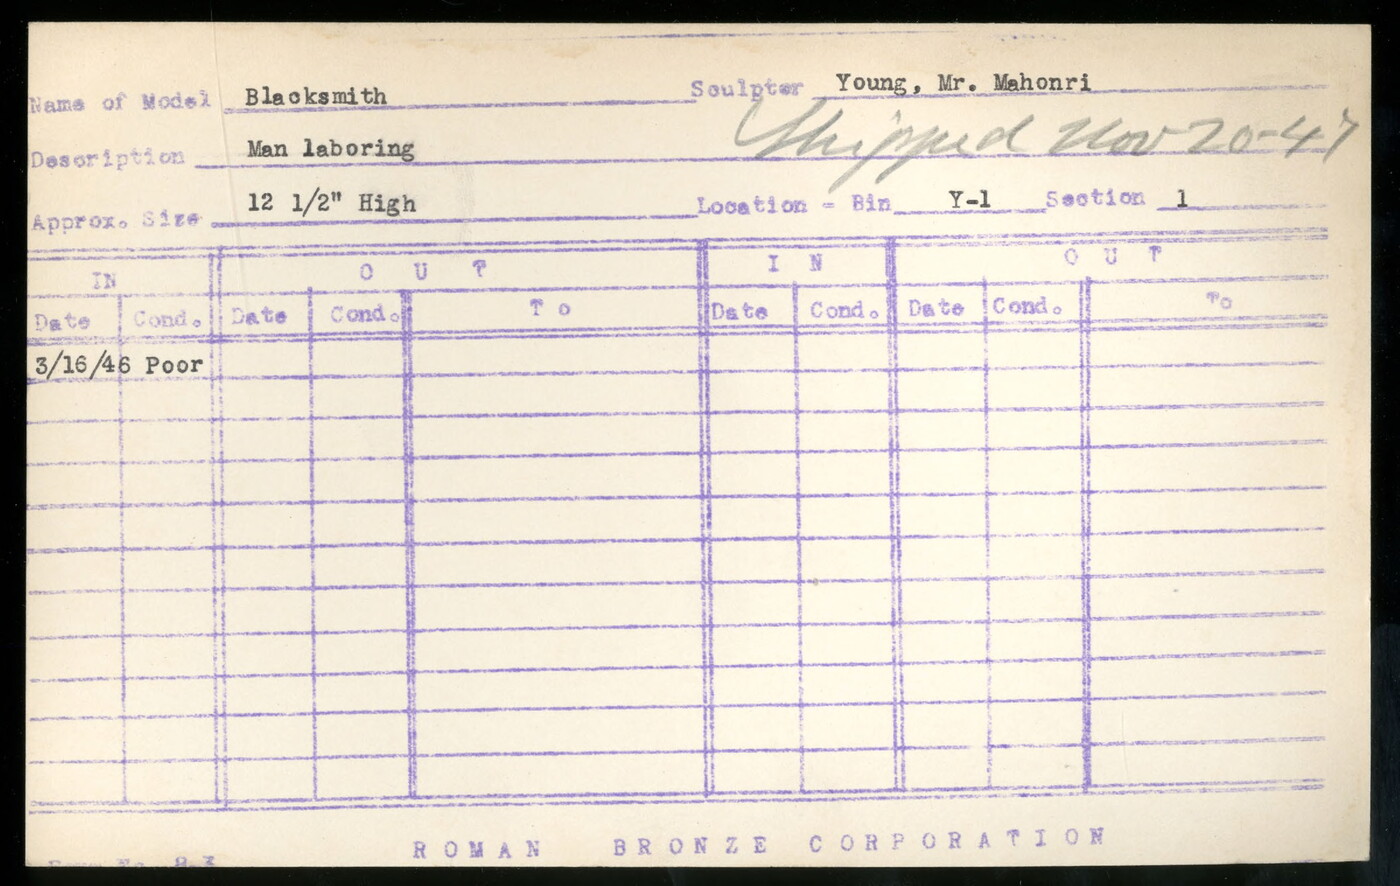 Name of Model Blacksmith Sculptor Young, Mr. Mahonri
Shipped Nov 20-47
Description Man laboring
Approx. Size 12 1/2" High Location - Bin Y-1 Section 1
IN O U T I N O U T
Date Cond. Date Cond. To Date Cond. Date Cond. To
3/16/46 Poor
ROMAN BRONZE CORPORATION
Form No. 8-3